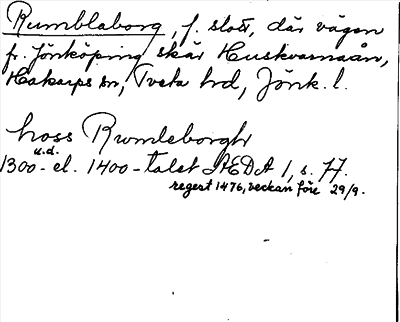 Rumblaborg, f. slott, där vägen
fr. Jönköping skär Huskvarnaån,
Hakarps sn, Tveta hd, Jönk. l.
hoss Rumleborgh
u.d.
1300- el. 1400-talet ÄEDA 1, s. 77.
regest 1476, veckan före 29/9.